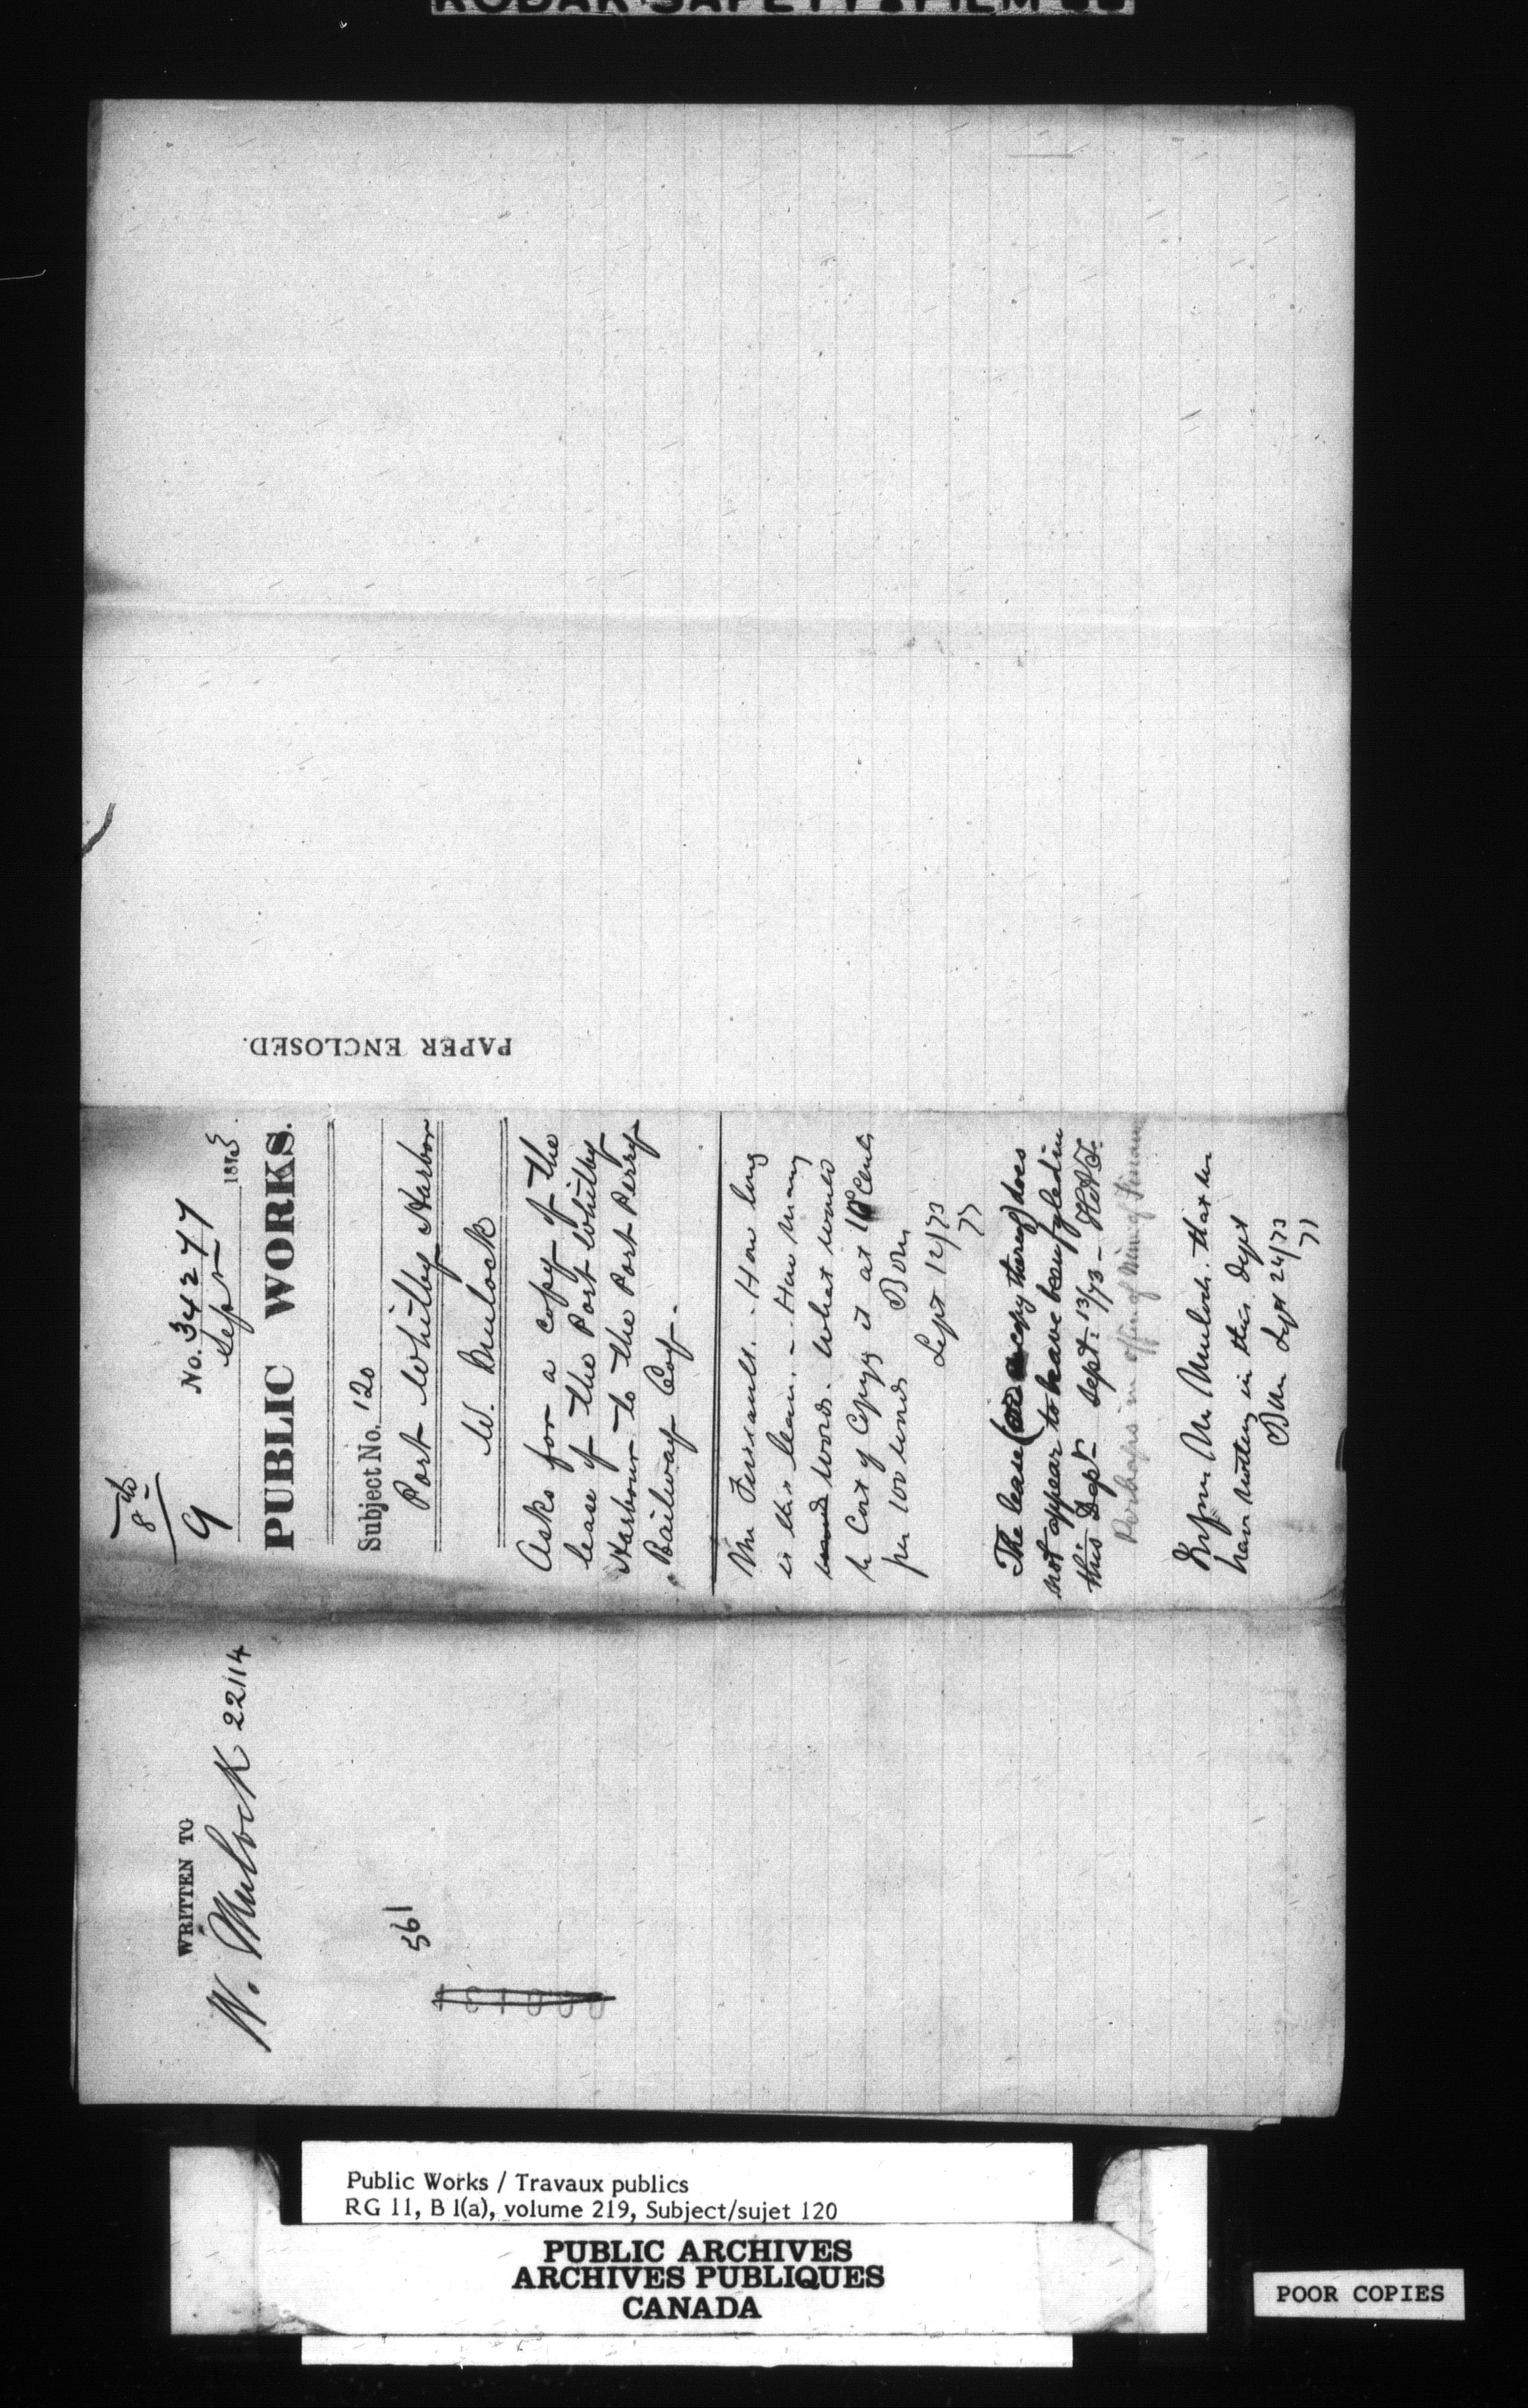 KODAK SAFETY FILM
8th
9
No. 34277
Sept 1873.
PUBLIC WORKS.
Subject No. 120
Port Whitby Harbor
W. Mulock
Asks for a copy of the
lease of the Port Whitby
Harbour to the Port Perry
Railway Coy.
Mr How long
is this lease. - How many
words. What would
be Cost of Copyg it at 10 Cents
per 100 words
Sept 12/73
The lease (or copy thereof) does
not appear to have been fyled in
this Dept. Sept. 13/73 -
Perhaps in office of Min of Finance
Inform Mr Mulock that we
have nothing in this Dept
Sept 24/73
PAPER ENCLOSED.
WRITTEN TO
W. Mulock 22114
561
Public Works / Travaux publics
RG 11, B 1(a), volume 219, Subject/sujet 120
PUBLIC ARCHIVES
ARCHIVES PUBLIQUES
CANADA
POOR COPIES